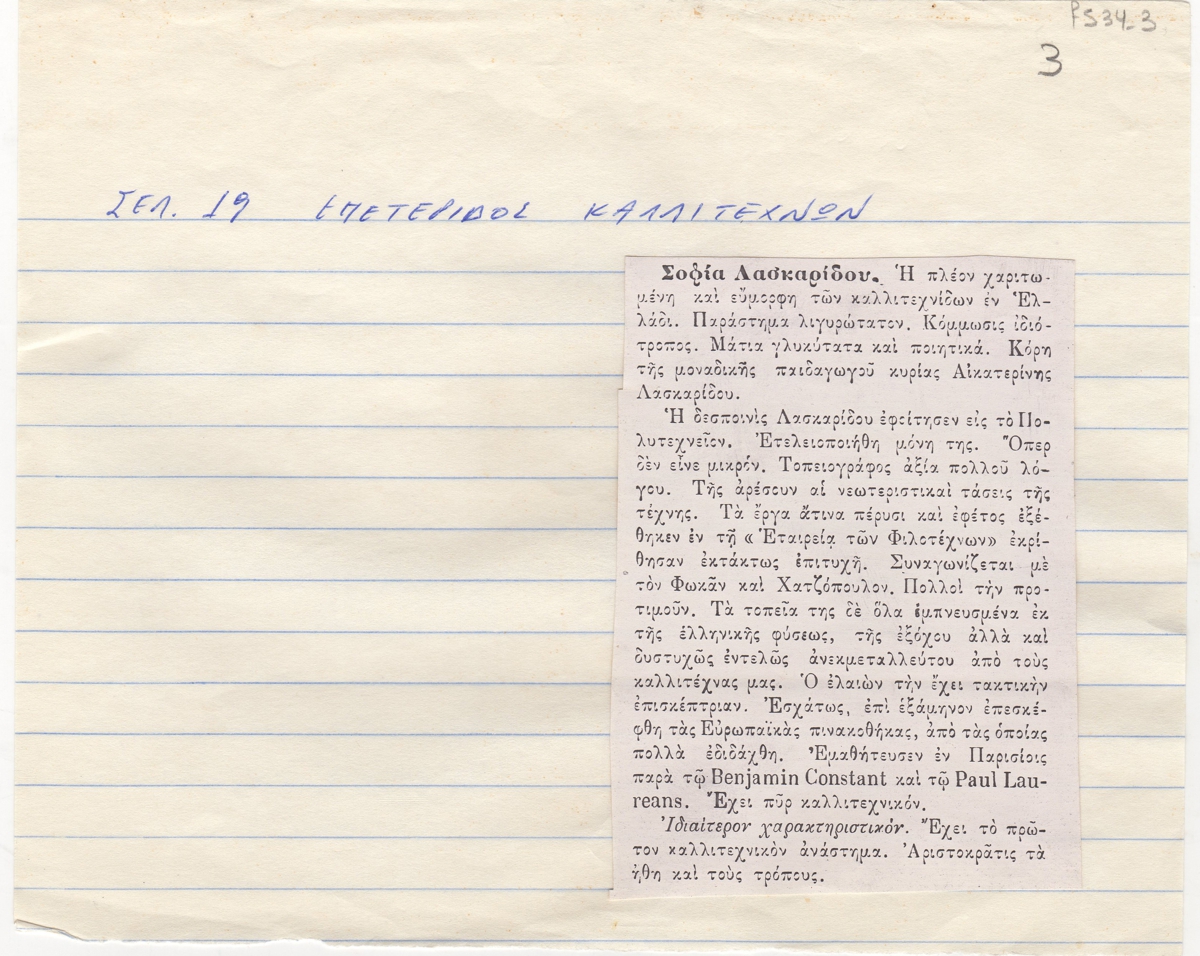 PS34-3
3
ΣΕΛ. 19 ΕΠΕΤΕΡΙΔΟΣ ΚΑΛΛΙΤΕΧΝΩΝ
Σοφία Λασκαρίδου. Ἡ πλέον χαριτω-
μένη καὶ εὔμορφη τῶν καλλιτεχνίδων ἐν Ἑλ-
λάδι. Παράστημα λιγυρώτατον. Κόμμωσις ἰδιό-
τροπος. Μάτια γλυκύτατα καὶ ποιητικά. Κόρη
τῆς μοναδικῆς παιδαγωγοῦ κυρίας Αἰκατερίνης
Λασκαρίδου.
Ἡ δεσποινὶς Λασκαρίδου ἐφοίτησεν εἰς τὸ Πο-
λυτεχνεῖον. Ἐτελειοποιήθη μόνη της. Ὅπερ
δὲν εἶνε μικρόν. Τοπειογράφος ἀξία πολλοῦ λό-
γου. Τῆς ἀρέσουν αἱ νεωτεριστικαὶ τάσεις τῆς
τέχνης. Τὰ ἔργα ἅτινα πέρυσι καὶ ἐφέτος ἐξέ-
θηκεν ἐν τῇ «Ἑταιρείᾳ τῶν Φιλοτέχνων» ἐκρί-
θησαν ἐκτάκτως ἐπιτυχῆ. Συναγωνίζεται μὲ
τὸν Φωκᾶν καὶ Χατζόπουλον. Πολλοὶ τὴν προ-
τιμοῦν. Τὰ τοπεῖα της δὲ ὅλα ἐμπνευσμένα ἐκ
τῆς ἑλληνικῆς φύσεως, τῆς ἐξόχου ἀλλὰ καὶ
δυστυχῶς ἐντελῶς ἀνεκμεταλλεύτου ἀπὸ τοὺς
καλλιτέχνας μας. Ὁ ἐλαιὼν τὴν ἔχει τακτικὴν
ἐπισκέπτριαν. Ἐσχάτως, ἐπὶ ἑξάμηνον ἐπεσκέ-
φθη τὰς Εὐρωπαϊκὰς πινακοθήκας, ἀπὸ τὰς ὁποίας
πολλὰ ἐδιδάχθη. Ἐμαθήτευσεν ἐν Παρισίοις
παρὰ τῷ Benjamin Constant καὶ τῷ Paul Lau-
reans. Ἔχει πῦρ καλλιτεχνικόν.
Ἰδιαίτερον χαρακτηριστικόν. Ἔχει τὸ πρῶ-
τον καλλιτεχνικὸν ἀνάστημα. Ἀριστοκρᾶτις τὰ
ἤθη καὶ τοὺς τρόπους.